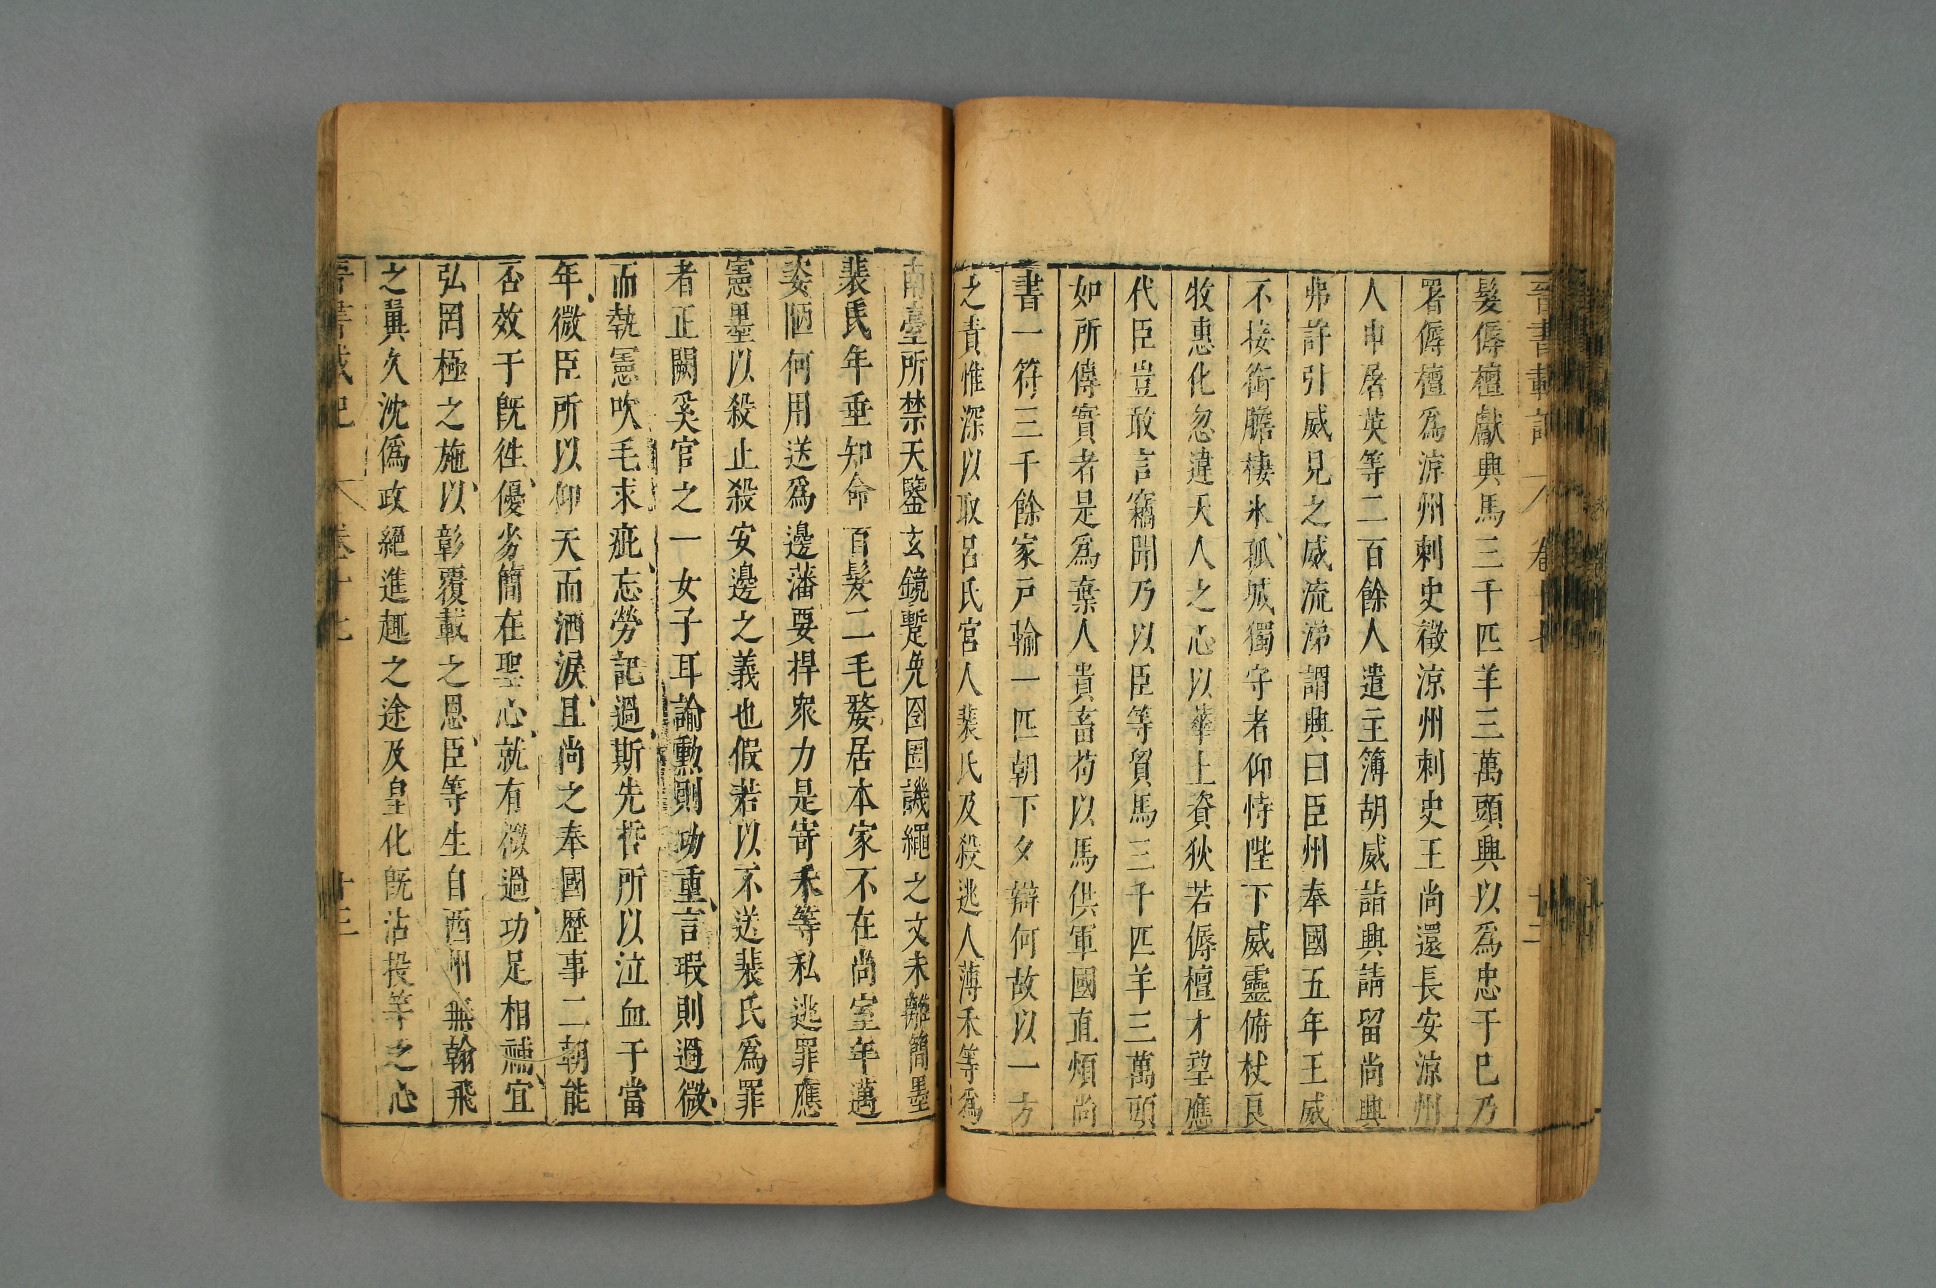 晉書載記 卷十七 十二
髮傉檀獻興馬三千匹羊三萬頭興以爲忠于已乃
署傉檀爲涼州刺史徵涼州刺史王尚還長安涼州
人申屠英等二百餘人遣主簿胡威詣興請留尚興
弗許引威見之威流涕謂興曰臣州奉國五年王威
不接銜膽棲氷孤城獨守者仰恃陛下威靈俯杖良
牧惠化忽違天人之心以華土資狄若傉檀才望應
代臣豈敢言竊聞乃以臣等貿馬三千匹羊三萬頭
如所傳實者是爲棄人貴畜苟以馬供軍國直煩尚
書一符三千餘家戸輸一匹朝下夕辦何故以一方
之責惟深以取呂氏宮人裴氏及殺逃人薄禾等爲
南臺所禁天鑒玄鏡蹔免囹圄譏繩之文未離簡墨
裴氏年垂知命百髮二毛嫠居本家不在尚室年邁
姿陋何用送爲邊藩要捍衆力是寄禾等私逃罪應
憲墨以殺止殺安邊之義也假若以不送裴氏爲罪
者正闕奚官之一女子耳論勳則功重言瑕則過微
而執憲吹毛求疵忘勞記過斯先哲所以泣血于當
年微臣所以仰天而洒淚且尚之奉國歷事二朝能
否效于旣往優劣簡在聖心就有微過功足相補宜
弘罔極之施以彰覆載之恩臣等生自西州無翰飛
之翼久沈僞政絕進趣之途及皇化旣沾投等之心
晉書載記 卷十七 十三